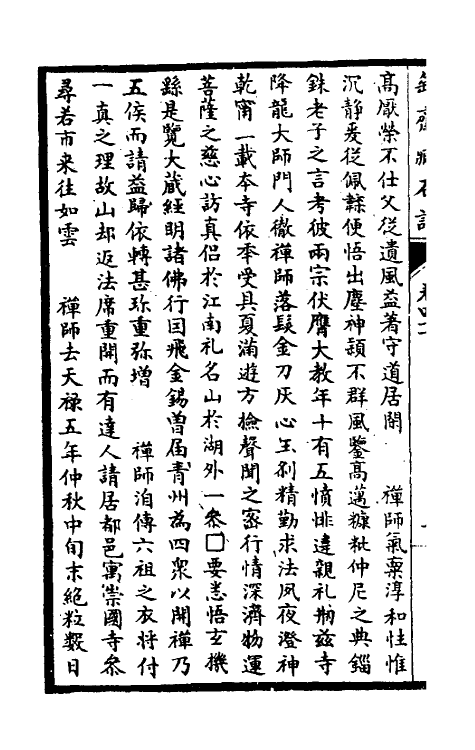 高厭榮不仕父從遺風益著守道居閑　　禪師氣稟淳和性惟
沉靜爰從佩韘便悟出塵神穎不群風鑒高邁糠粃仲尼之典錙
銖老子之言考彼兩宗伏膺大教年十有五憤悱違親礼瓶兹寺
降龍大師門人徹禪師落髮金刀灰心玉剎精勤求法夙夜澄神
乾甯一載夲寺依奉受具夏滿遊方撿聲聞之密行情深濟物運
菩薩之慈心訪真侣於江南礼名山於湖外一叅□要悉悟玄機
繇是覽大蔵經明諸佛行囙飛金錫曾届青州為四衆以開禪乃
五侯而請益歸依轉甚珎重弥增　　禪師洎傳六祖之衣将付
一真之理故山却返法席重開而有達人請居都邑寓崇國寺叅
尋若市来往如雲　　禪師去天禄五年仲秋中旬末絶粒數日